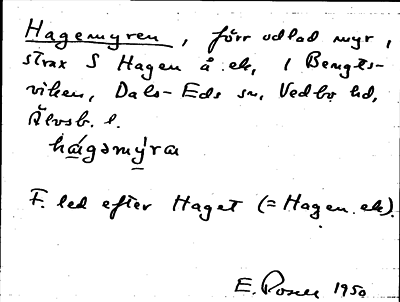 Hagemyren, förr odlad myr,
strax S Hagen å ek, i Bengts-
viken, Dals-Eds sn, Vedbo hd,
Älvsb. l.
hágəmỳra
F. led efter Haget (= Hagen ek).
E. 1950